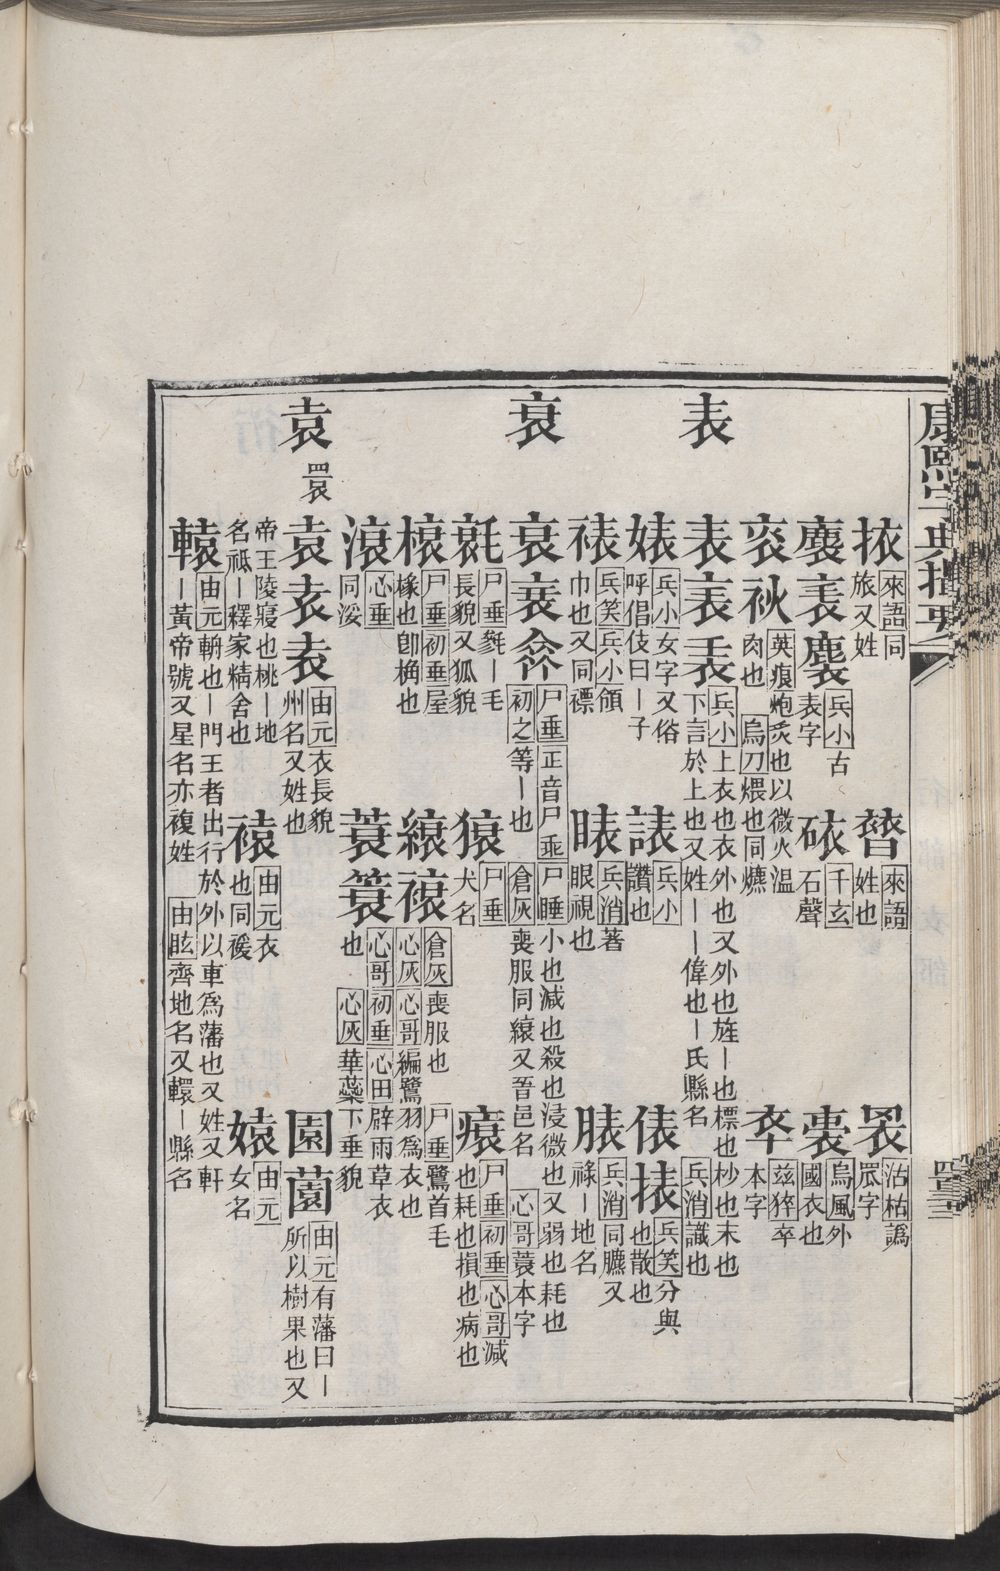 康熙字典撮要
表
衰
袁
睘
挔 來語同旅又姓
㬱 來語姓也
罬 沽枯譌罛字
褱 兵小古表字
砞 千玄石聲
裛 烏風外國衣也
裦 英痕炮炙也以微火溫肉也 烏刀煨也同爊
卒 茲猝卒本字
表 兵小上衣也衣外也又外也旌丨也標也杪也末也下言於上也又姓丨丨偉也丨氏縣名
婊 兵小女字又俗呼倡伎曰丨子
諘 兵小讚也
俵 兵消識也
捸 兵笑分與也散也
裱 兵笑兵小領巾也又同褾
䁃 兵消著眼視也
脿 兵消同臕又祿丨地名
衰 尸垂正音尸乖尸睡小也減也殺也浸微也又弱也耗也初之等丨也 倉灰喪服同縗又晉邑名 心哥蓑本字
毸 尸垂毿丨毛長貌又狐貌
猿 尸垂犬名
瘝 尸垂初垂心哥減也耗也損也病也
榱 尸垂初垂屋椽也卽桷也
縗 縗 倉灰喪服也 尸垂鷺首毛 心灰心哥編鷺羽爲衣也
滖 心垂同浽
蓑 簑 心哥初垂心田辟雨草衣也 心灰華蘂下垂貌
袁 由元衣長貌州名又姓也
園 薗 由元有藩曰丨所以樹果也又帝王陵寢也桃丨地名祗丨釋家精舍也
褤 由元衣也同褑
媴 由元女名
轅 由元輈也丨門王者出行於外以車爲藩也又姓又軒丨黃帝號又星名亦複姓 由眩齊地名又轘丨縣名